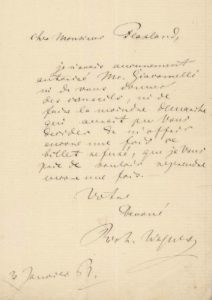 Cher Monsieur
je n'avais aucunement
autorisé Mr. Giacomelli
ni de vous donner
des conseils, ni de
faire la moindre démarche
qui aurait pu vous
décider de m'offrir
encore une fois ce
billet refusé, que je vous
prie de vouloir reprendre
encore une fois.
Votre
dévoué
Rich. Wagner
Janvier